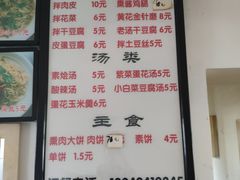 拌肉皮 10元 熏鸡肠
拌花菜 6元 黄花金针磨 8元
拌干豆腐 5元 老汤干豆腐 6元
皮蛋豆腐 6元 拌土豆丝5元
汤类
素烩汤 5元 紫菜蛋花汤5元
酸辣汤 5元 小白菜豆腐汤5元
蛋花玉米羹6元
主食
熏肉大饼 肉饼 素饼 4元
单饼 1.5元